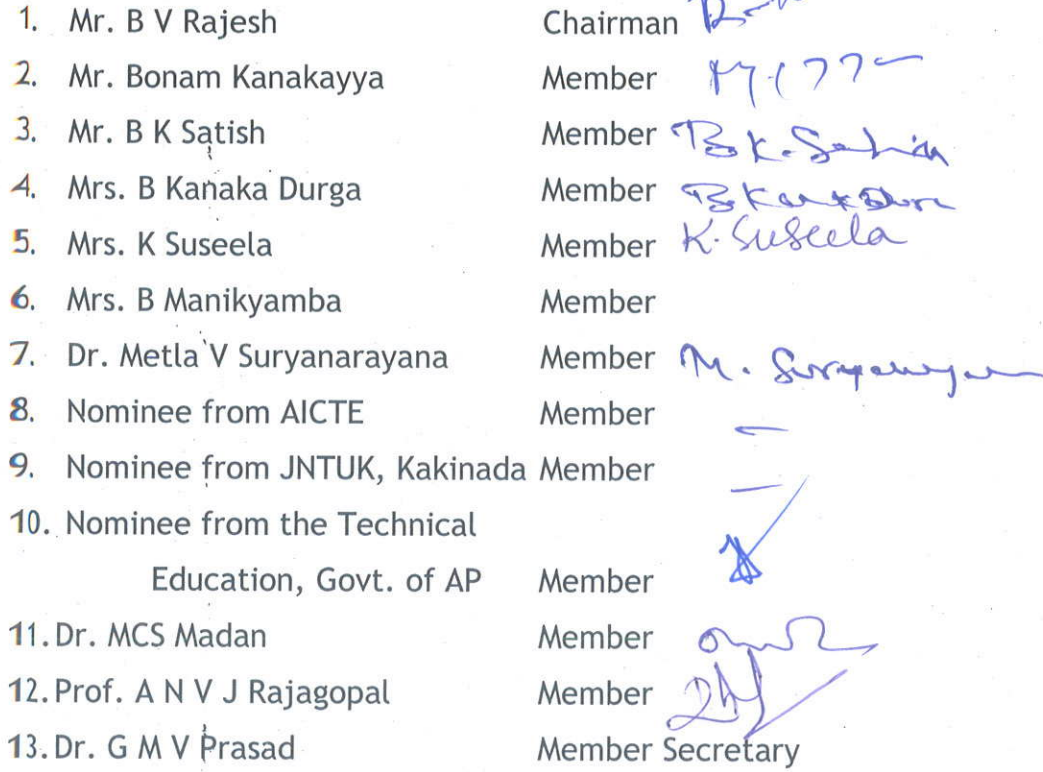 1. Mr. B V Rajesh Chairman
2. Mr. Bonam Kanakayya Member
3. Mr. B K Satish Member B.K. Satish
4. Mrs. B Kanaka Durga Member
5. Mrs. K Suseela Member K. Suseela
6. Mrs. B Manikyamba Member
7. Dr. Metla V Suryanarayana Member M.
8. Nominee from AICTE Member –
9. Nominee from JNTUK, Kakinada Member –
10. Nominee from the Technical
Education, Govt. of AP Member
11. Dr. MCS Madan Member
12. Prof. A N V J Rajagopal Member
13. Dr. G M V Prasad Member Secretary